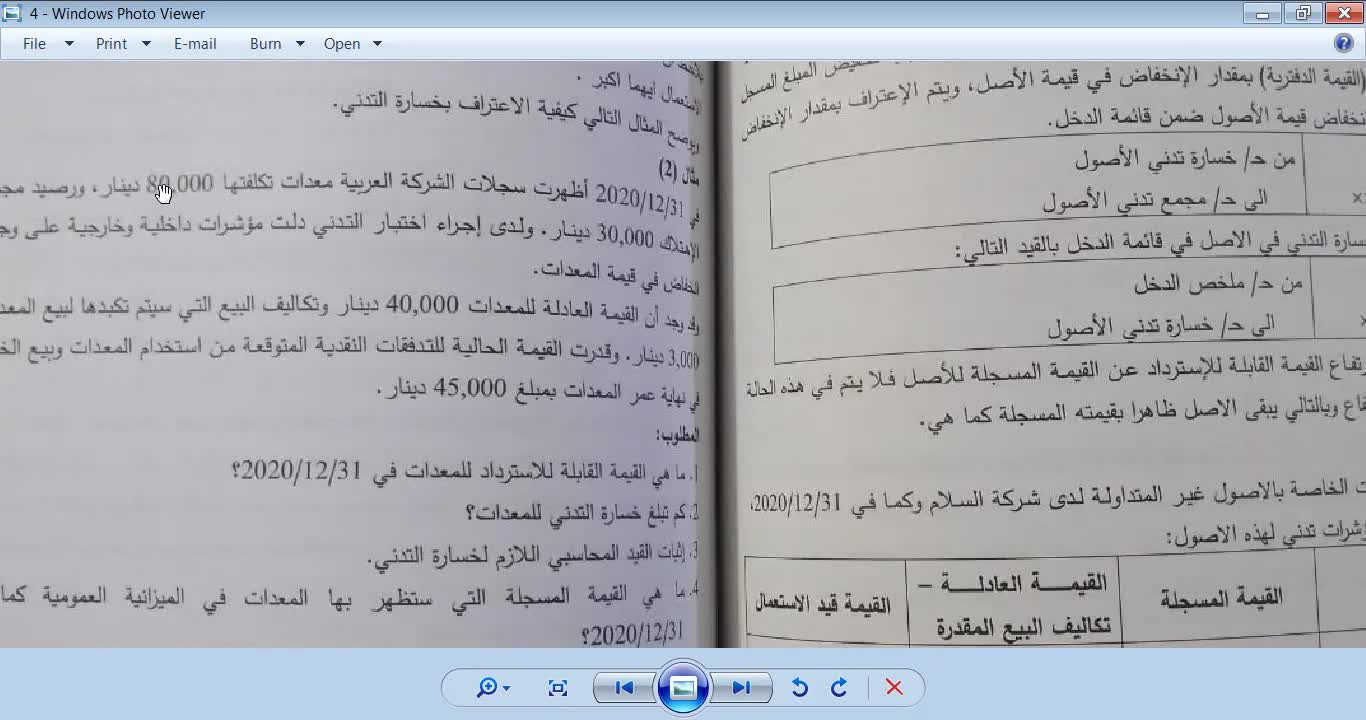 4 - Windows Photo Viewer
File Print E-mail Burn Open
(القيمة الدفترية) بمقدار الإنخفاض في قيمة الأصل، ويتم الإعتراف بمقدار الإنخفاض
قيمة الأصول ضمن قائمة الدخل.
من حـ/ خسارة تدني الأصول
الى حـ/ مجمع تدني الأصول
التدني في الاصل في قائمة الدخل بالقيد التالي:
من حـ/ ملخص الدخل
الى حـ/ خسارة تدني الأصول
القيمة القابلة للإسترداد عن القيمة المسجلة للأصل فلا يتم في هذه الحالة
وبالتالي يبقى الاصل ظاهرا بقيمته المسجلة كما هي.
الخاصة بالاصول غير المتداولة لدى شركة السلام وكما في 2020/12/31،
تدني لهذه الاصول:
القيمة المسجلة
القيمـــة العادلـــة –
تكاليف البيع المقدرة
القيمة قيد الاستعمال
الإستعمال ايهما اكبر .
ويوضح المثال التالي كيفية الاعتراف بخسارة التدني.
مثال (2)
في 2020/12/31 أظهرت سجلات الشركة العربية معدات تكلفتها 80,000 دينار، ورصيد
الإمتلاك 30,000 دينار. ولدى إجراء اختبار التدني دلت مؤشرات داخلية وخارجية على
انخفاض في قيمة المعدات.
وقد وجد أن القيمة العادلة للمعدات 40,000 دينار وتكاليف البيع التي سيتم تكبدها لبيع
3,000 دينار. وقدرت القيمة الحالية للتدفقات النقدية المتوقعة من استخدام المعدات وبيع
في نهاية عمر المعدات بمبلغ 45,000 دينار.
المطلوب:
1. ما هي القيمة القابلة للاسترداد للمعدات في 2020/12/31؟
2. كم تبلغ خسارة التدني للمعدات؟
3. إثبات القيد المحاسبي اللازم لخسارة التدني.
4. ما هي القيمة المسجلة التي ستظهر بها المعدات في الميزانية العمومية كما
2020/12/31؟